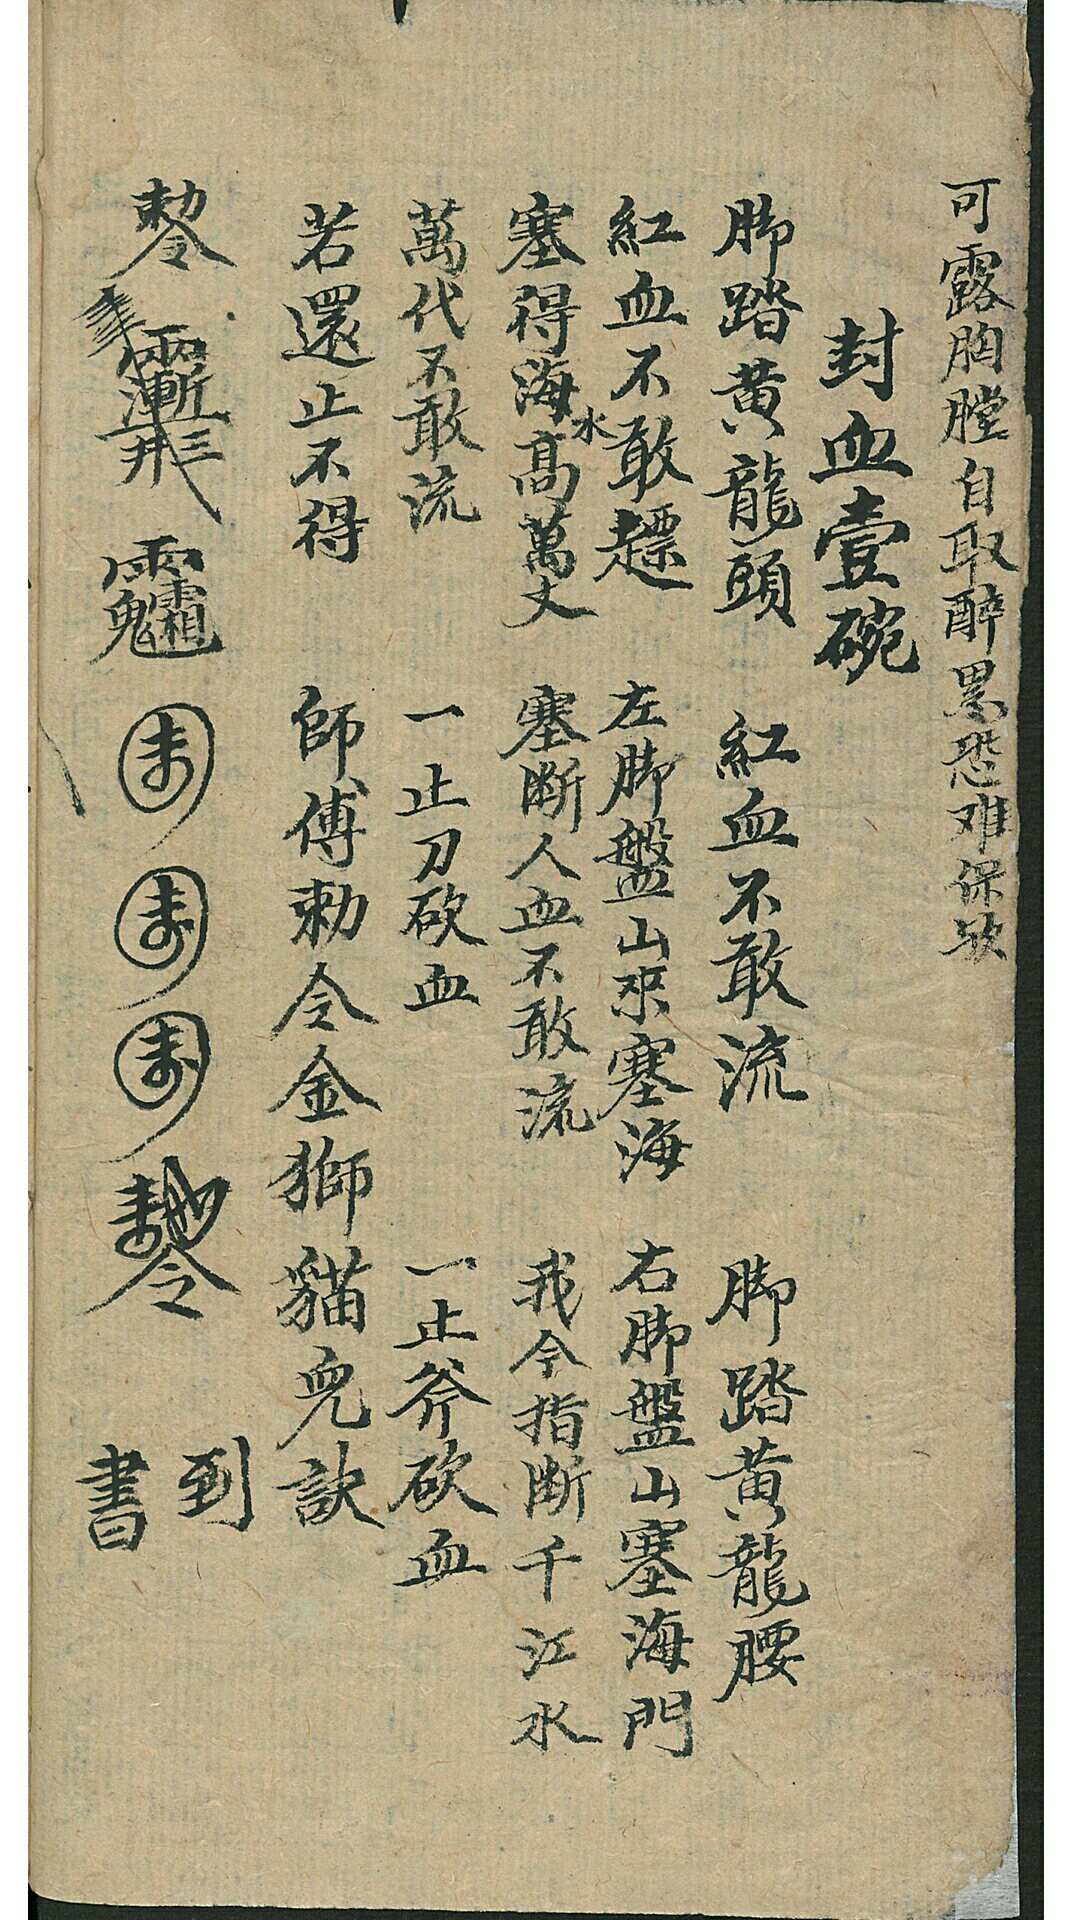 可露胸膛自取醉累恐难保
封血壹碗
脚踏黄龍頭　紅血不敢流　脚踏黄龍腰
紅血不敢趮　左脚盤山來塞海　右脚盤山塞海門
塞得海水高萬丈　塞断人血不敢流　我今指断千江水
萬代不敢流　一止刀砍血　一止斧砍血
若還止不得　師傅勅令金獅貓兒訣
勅令
到書